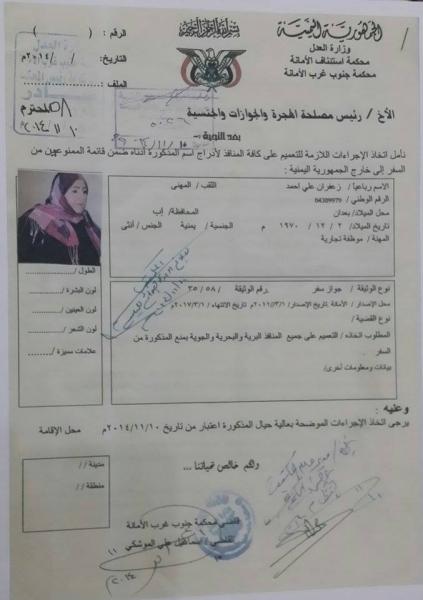 الجمهورية اليمنية
وزارة العدل
محكمة استئناف الأمانة
محكمة جنوب غرب الأمانة
بسم الله الرحمن الرحيم
الرقم : ( )
التاريخ: / / ٢٠١٤م
الملف :
الأخ / رئيس مصلحة الهجرة والجوازات والجنسية المحترم
بعد التحية ،،
نأمل اتخاذ الإجراءات اللازمة للتعميم على كافة المنافذ لأدراج اسم المذكورة أدناه ضمن قائمة الممنوعين من
السفر إلى خارج الجمهورية اليمنية :
الاسم رباعياً / زعفران علي احمد اللقب / المهنى
الرقم الوطني / 04309979
محل الميلاد/ بعدان المحافظة/ إب
تاريخ الميلاد/ ٢ / ١٢ / ١٩٧٠ م الجنسية / يمنية الجنس / أنثى
المهنة / موظفة تجارية
نوع الوثيقة / جواز سفر رقم الوثيقة / ٣٥/٥٨
محل الإصدار/ الأمانة تاريخ الإصدار/ ٢٠١١/٣/١م تاريخ الانتهاء / ٢٠١٧/٣/١م
نوع القضية /
المطلوب اتخاذه / التعميم على جميع المنافذ البرية والبحرية والجوية بمنع المذكورة من
السفر
بيانات ومعلومات أخرى/
الطول /
لون البشرة /
لون العينين /
لون الشعر /
علامات مميزة /
وعليه :
يرجى اتخاذ الإجراءات الموضحة بعالية حيال المذكورة اعتبار من تاريخ ٢٠١٤/١١/١٠م محل الإقامة
مدينة //
منطقة //
ولكم خالص تحياتنا ،،،
قاضي محكمة جنوب غرب الأمانة
القاضي / إسماعيل علي الموشكي